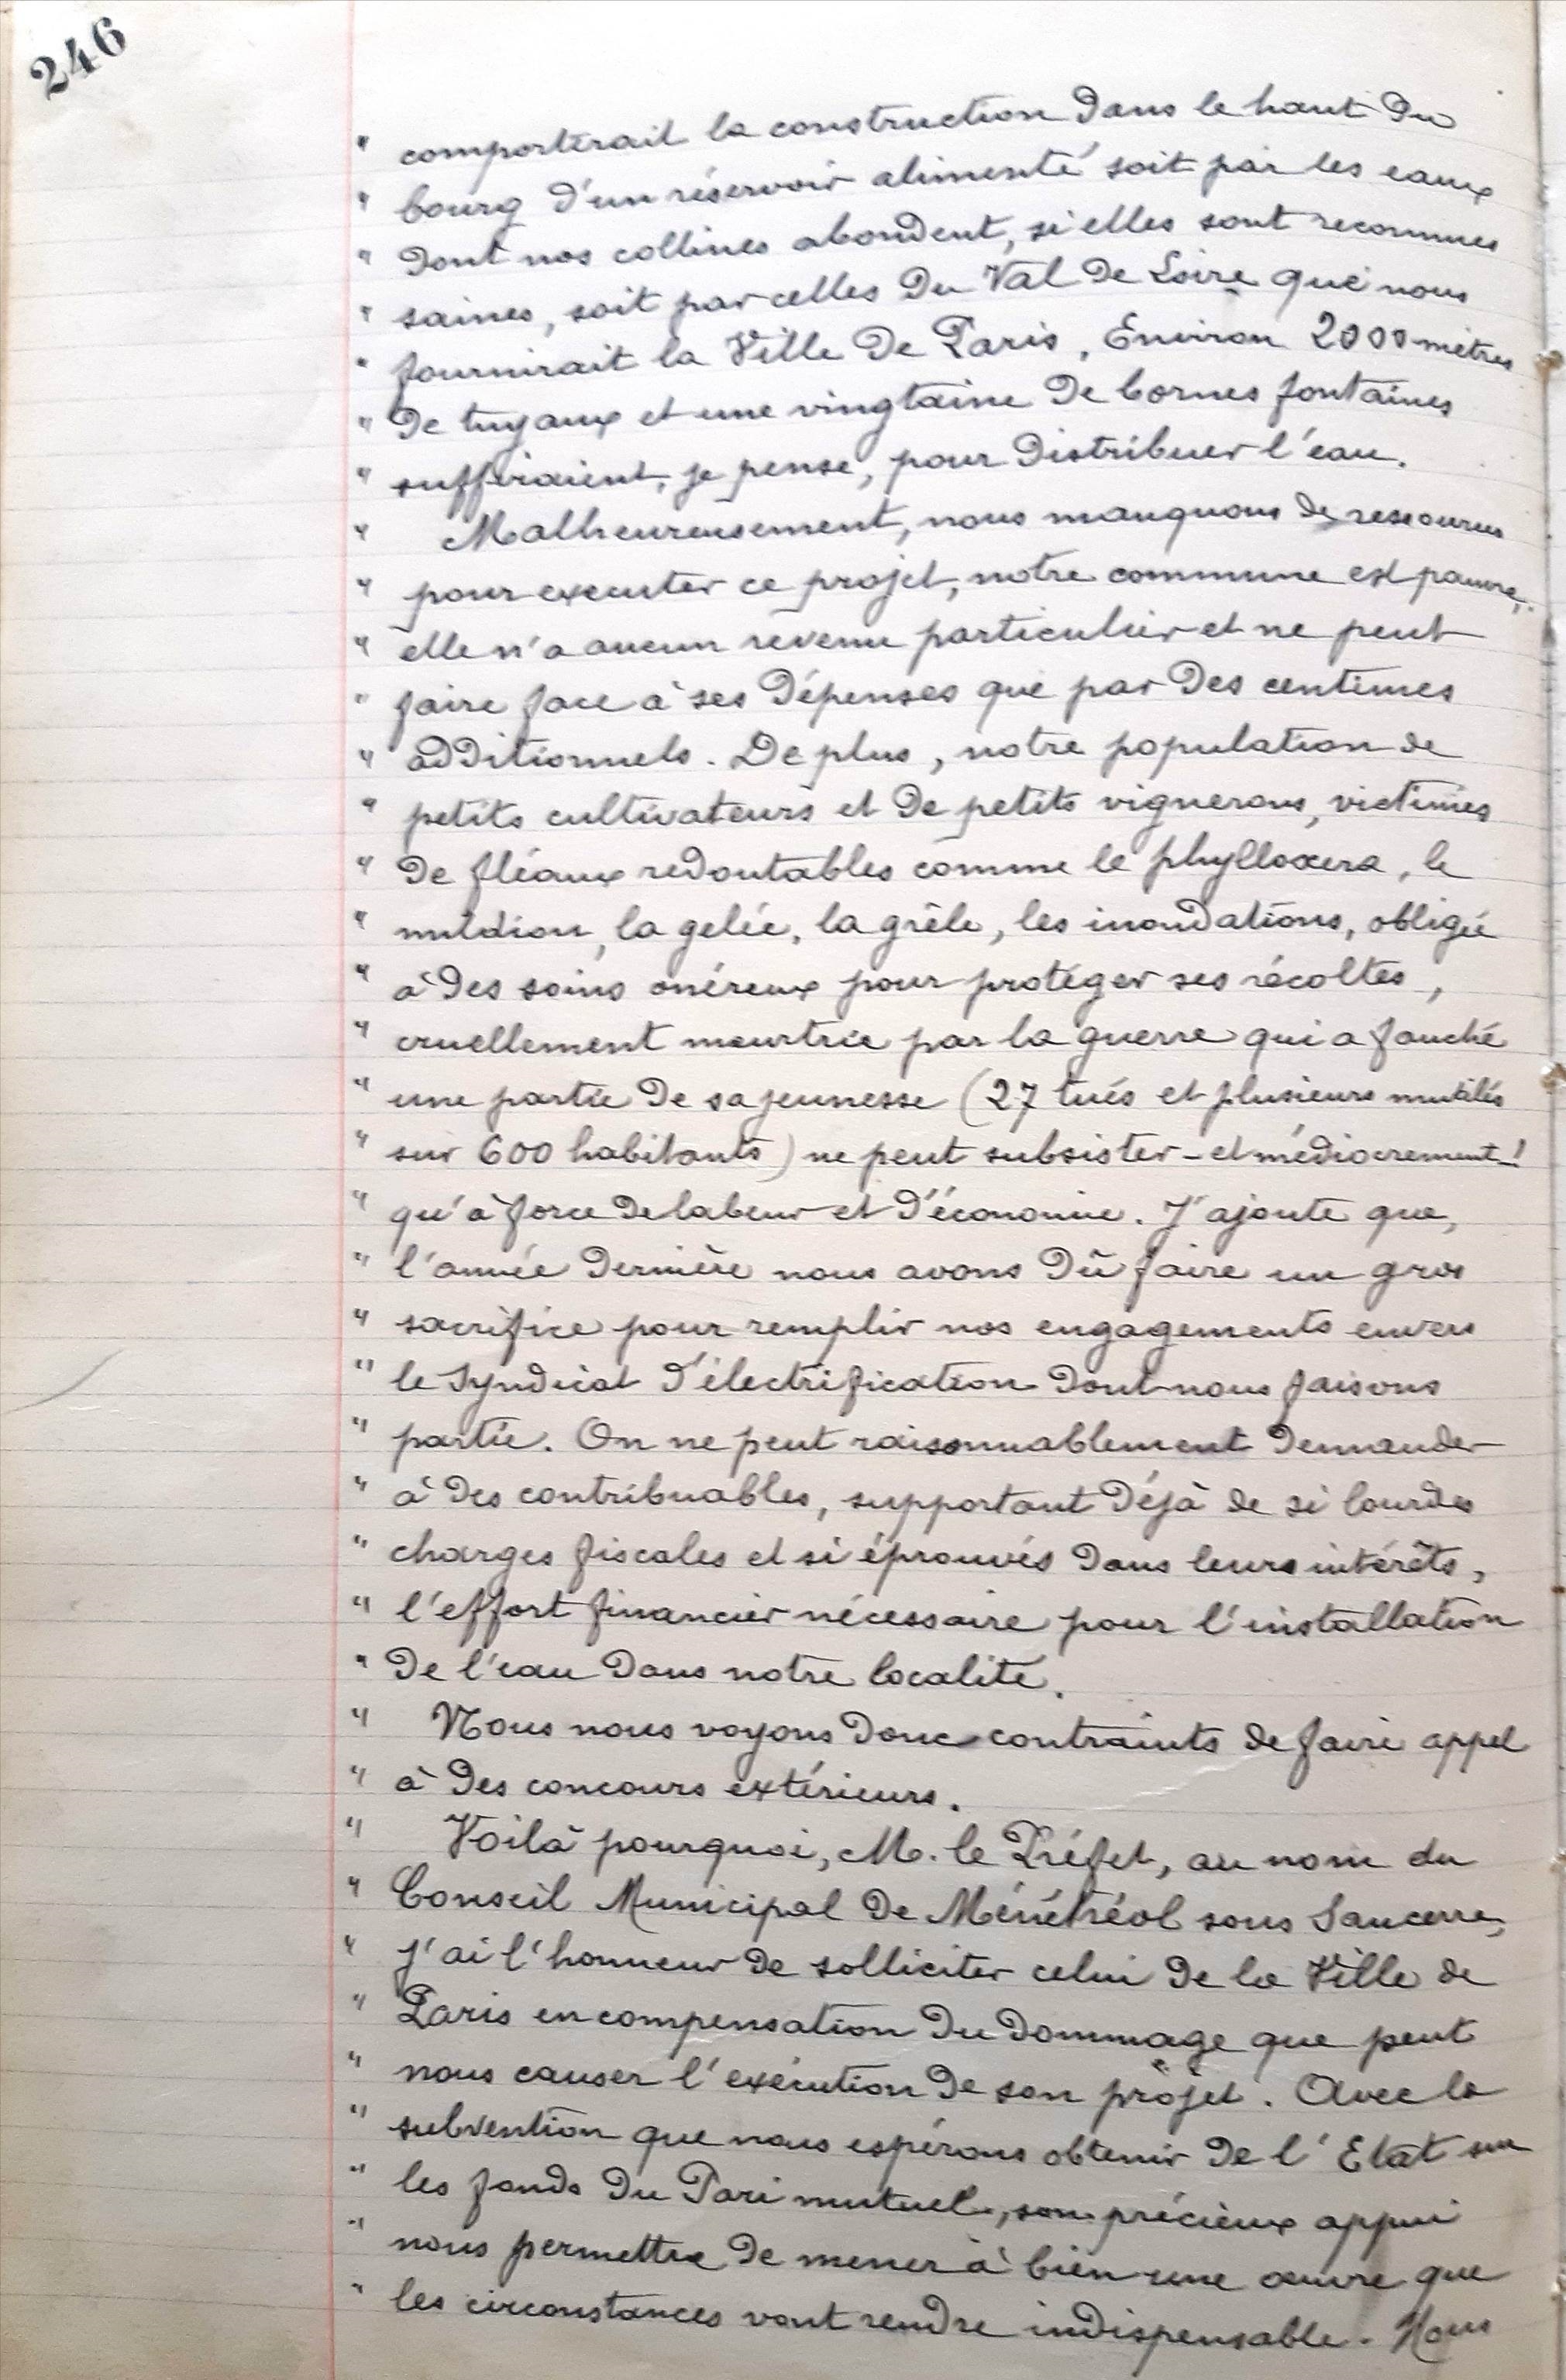 246
" comporterait la construction dans le haut du
" bourg d'un réservoir alimenté soit par les eaux
" dont nos collines abondent, si elles sont reconnues
" saines, soit par celles du Val de Loire que nous
" fournirait la Ville de Paris. Environ 2000 mètres
" de tuyaux et une vingtaine de bornes fontaines
" suffiraient, je pense, pour distribuer l'eau.
" Malheureusement, nous manquons de ressources
" pour executer ce projet, notre commune est pauvre,
" elle n'a aucun revenu particulier et ne peut
" faire face à ses dépenses que par des centimes
" additionnels. De plus, notre population de
" petits cultivateurs et de petits vignerons, victimes
" de fléaux redoutables comme le phylloxera, le
" mildiou, la gelée, la grêle, les inondations, obligée
" à des soins onéreux pour protéger ses récoltes,
" cruellement meurtrie par la guerre qui a fauché
" une partie de sa jeunesse (27 tués et plusieurs mutilés
" sur 600 habitants) ne peut subsister - et médiocrement -!
" qu'à force de labeur et d'économie. J'ajoute que,
" l'année dernière nous avons dû faire un gros
" sacrifice pour remplir nos engagements envers
" le Syndicat d'électrification dont nous faisons
" partie. On ne peut raisonnablement demander
" à des contribuables, supportant déjà de si lourdes
" charges fiscales et si éprouvés dans leurs intérêts,
" l'effort financier nécessaire pour l'installation
" de l'eau dans notre localité.
" Nous nous voyons donc contraints de faire appel
" à des concours extérieurs.
" Voilà pourquoi, M. le Préfet, au nom du
" Conseil Municipal de Ménétréol sous Sancerre,
" j'ai l'honneur de solliciter celui de la Ville de
" Paris en compensation du dommage que peut
" nous causer l'exécution de son projet. Avec la
" subvention que nous espérons obtenir de l'Etat sur
" les fonds du Pari mutuel, son précieux appui
" nous permettra de mener à bien une œuvre que
" les circonstances vont rendre indispensable. Nous